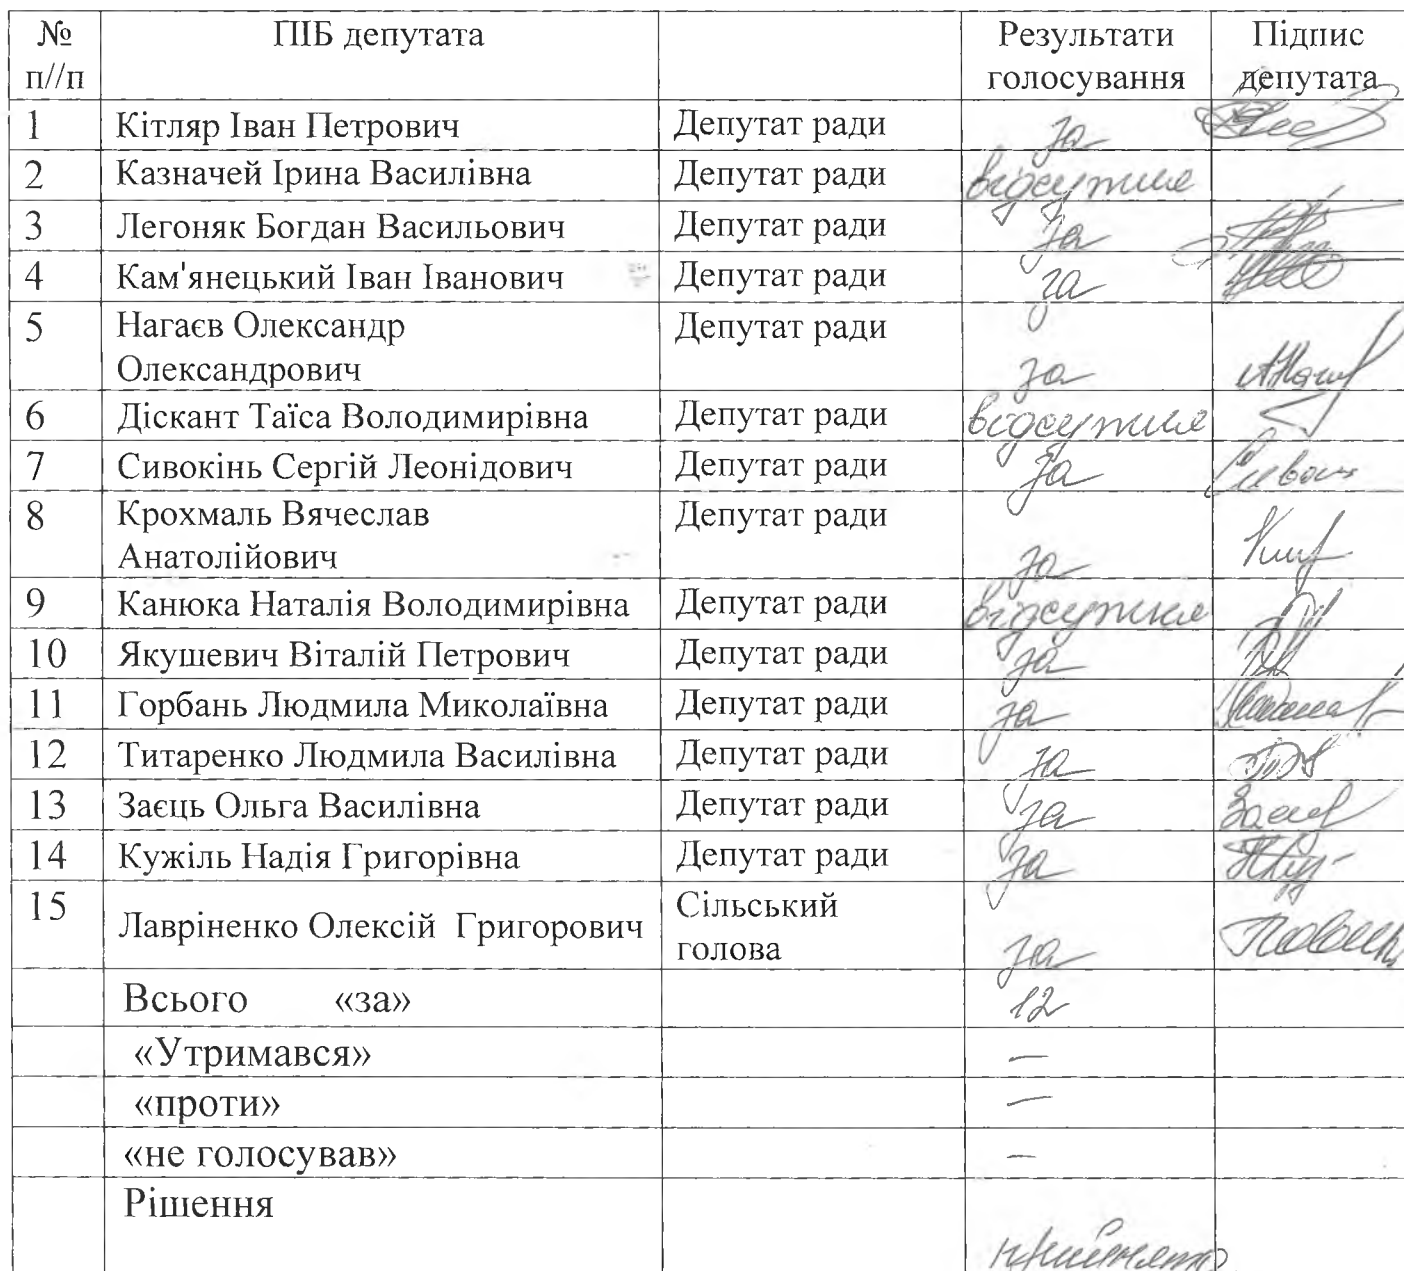 № п//п ПІБ депутата Результати голосування Підпис депутата
1 Кітляр Іван Петрович Депутат ради за
2 Казначей Ірина Василівна Депутат ради відсутня
3 Легоняк Богдан Васильович Депутат ради за
4 Кам'янецький Іван Іванович Депутат ради за
5 Нагаєв Олександр Депутат ради
Олександрович за
6 Діскант Таїса Володимирівна Депутат ради відсутня
7 Сивокінь Сергій Леонідович Депутат ради за
8 Крохмаль Вячеслав Депутат ради
Анатолійович за
9 Канюка Наталія Володимирівна Депутат ради відсутня
10 Якушевич Віталій Петрович Депутат ради за
11 Горбань Людмила Миколаївна Депутат ради за
12 Титаренко Людмила Василівна Депутат ради за
13 Заєць Ольга Василівна Депутат ради за
14 Кужіль Надія Григорівна Депутат ради за
15 Лавріненко Олексій Григорович Сільський голова за
Всього «за» 12
«Утримався» —
«проти» —
«не голосував» —
Рішення прийнято